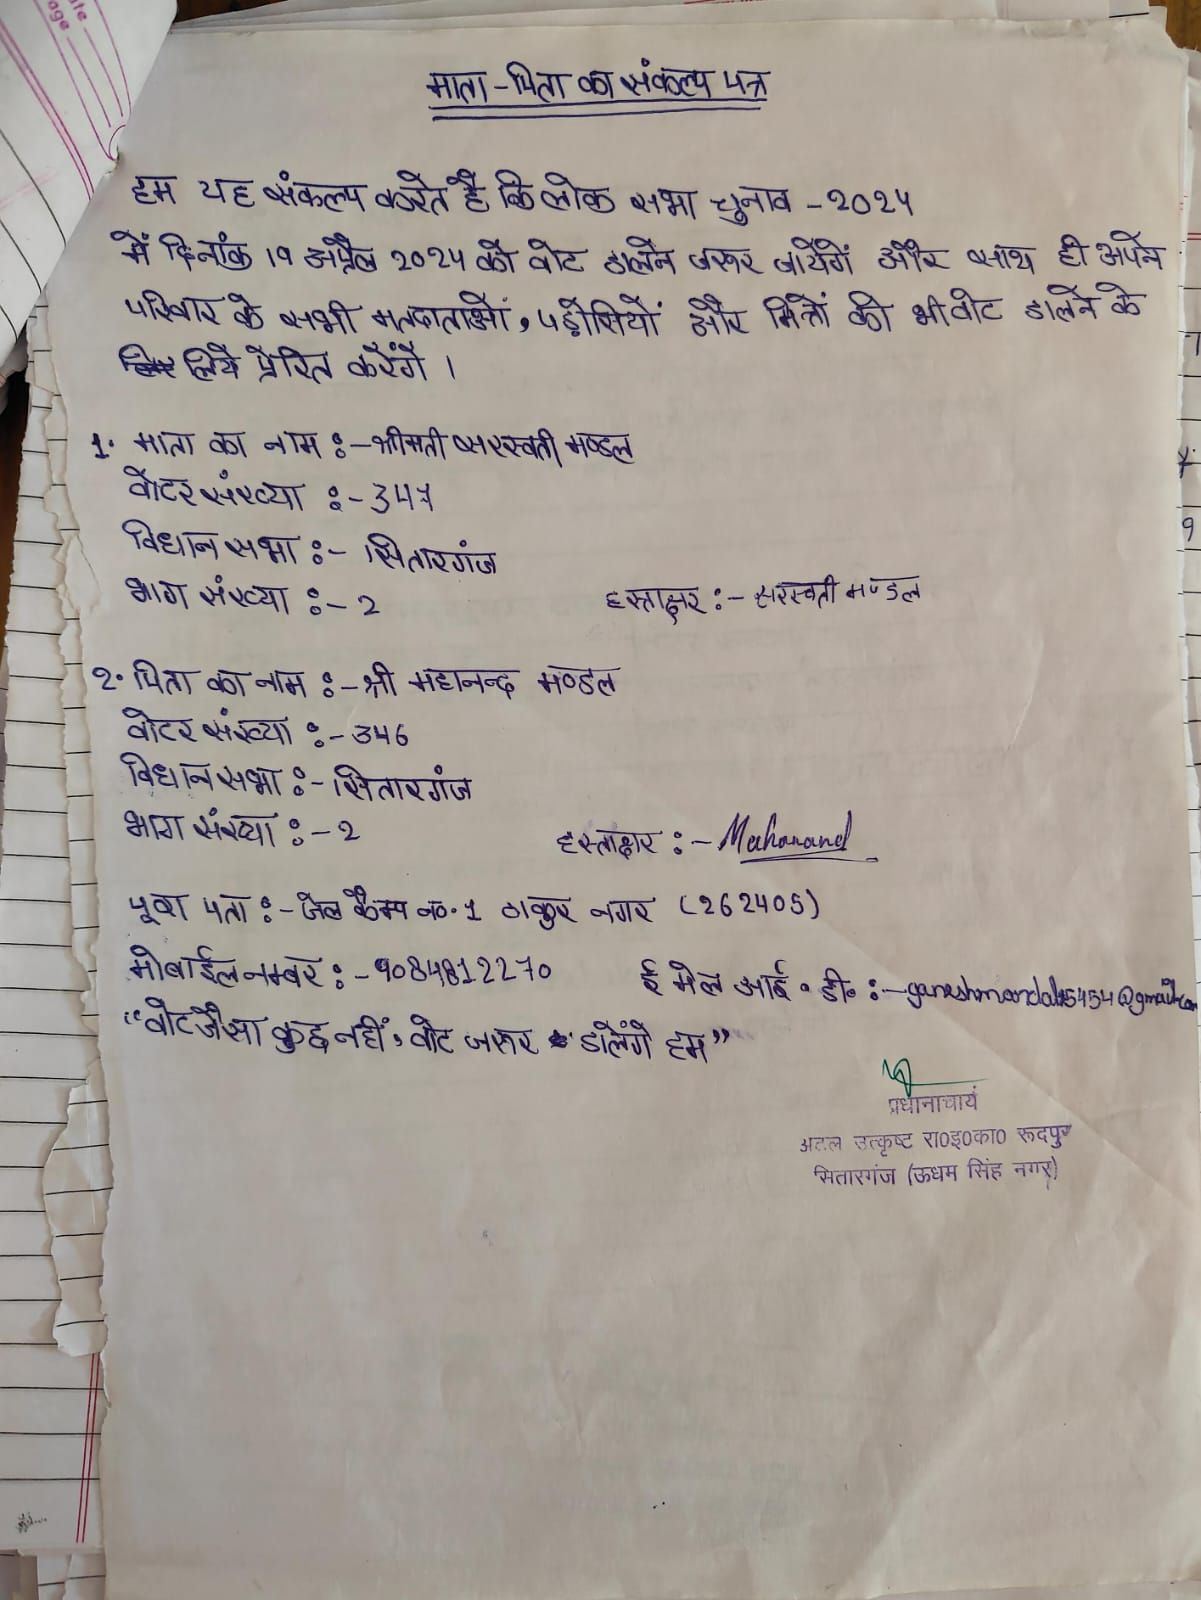 माता-पिता का संकल्प पत्र
हम यह संकल्प करते है कि लोक सभा चुनाव - 2024
में दिनांक 19 अप्रैल 2024 को वोट डालने जरूर जायेंगें और साथ ही अपने
परिवार के सभी मतदाताओं, पड़ोसियों और मित्रों को भी वोट डालने के
लिये प्रेरित करेंगें ।
1. माता का नाम :- श्रीमती सरस्वती मण्डल
वोटर संख्या :- 347
विधान सभा :- सितारगंज
भाग संख्या :- 2 हस्ताक्षर :- सरस्वती मण्डल
2. पिता का नाम :- श्री महानन्द मण्डल
वोटर संख्या :- 346
विधान सभा :- सितारगंज
भाग संख्या :- 2 हस्ताक्षर :- Mahanand
पूरा पता :- जेल कैम्प न०.1 ठाकुर नगर (262405)
मोबाईल नम्बर :- 9084812270 ई मेल आई. डी. :-
"वोट जैसा कुछ नहीं, वोट जरूर डालेंगे हम"
प्रधानाचार्य
अटल उत्कृष्ट रा0इ0का0 रूदपुर
सितारगंज (ऊधम सिंह नगर)